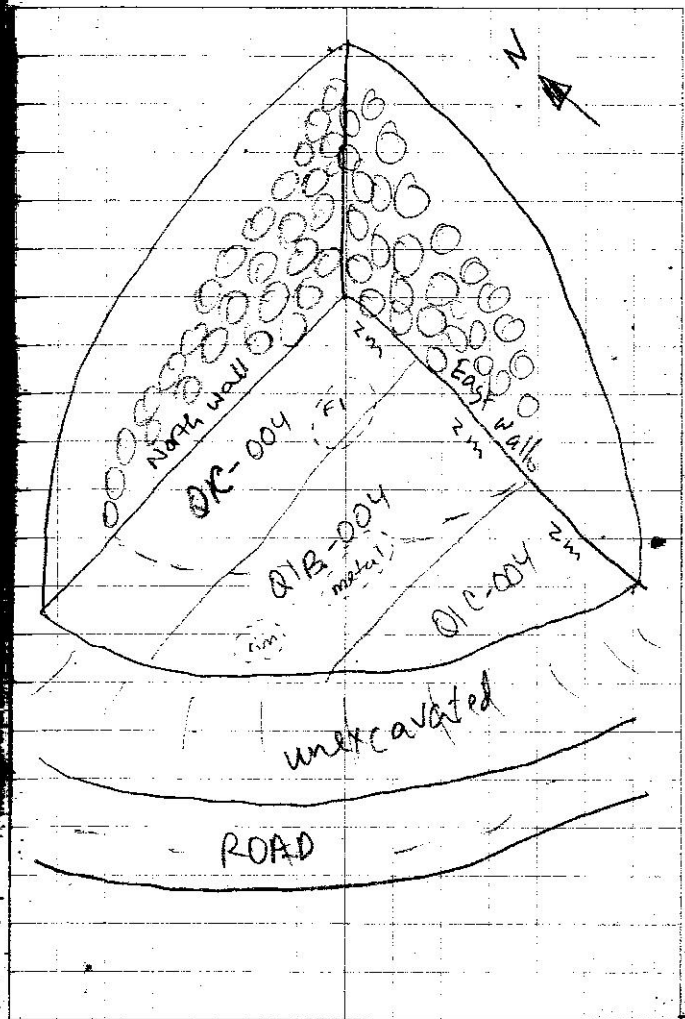 N
North wall
East wall
2m
2m
2m
F1
Q1C-004
Q1B-004
metal
Q1C-004
unexcavated
ROAD